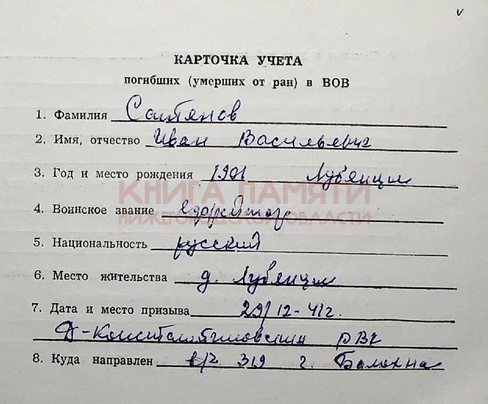 КАРТОЧКА УЧЕТА
погибших (умерших от ран) в ВОВ
1. Фамилия Сатянов
2. Имя, отчество Иван Васильевич
3. Год и место рождения 1901 Лубянцы
КНИГА ПАМЯТИ
НИЖЕГОРОДСКОЙ ОБЛАСТИ
4. Воинское звание ефрейтор
5. Национальность русский
6. Место жительства д. Лубянцы
7. Дата и место призыва 29/12-41г.
Д-Константиновским РВК
8. Куда направлен в/ч 319 г. Балахна